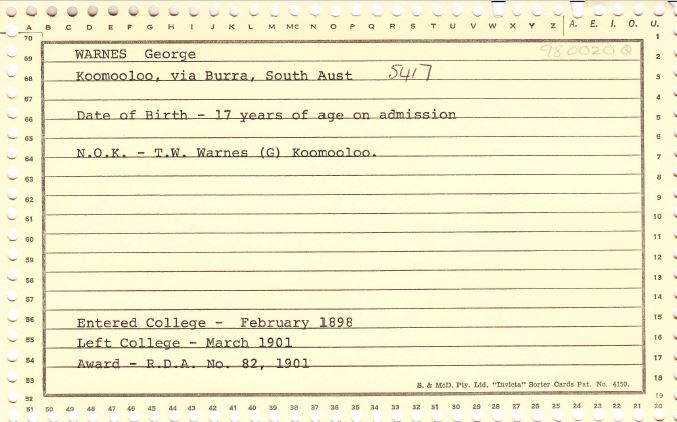 A B C D E F G H I J K L M MC N O P Q R S T U V W X Y Z A. E. I. O. U.
70 1
69 WARNES George 980020Q 2
68 Koomooloo, via Burra, South Aust 5417 3
67 4
66 Date of Birth - 17 years of age on admission 5
65 6
64 N.O.K. - T.W. Warnes (G) Koomooloo. 7
63 8
62 9
61 10
60 11
59 12
58 13
57 14
56 Entered College - February 1898 15
55 Left College - March 1901 16
54 Award - R.D.A. No. 82, 1901 17
53 S. & McD. Pty. Ltd. "Invicta" Sorter Cards Pat. No. 4150. 18
52 19
51 50 49 48 47 46 45 44 43 42 41 40 39 38 37 36 35 34 33 32 31 30 29 28 27 26 25 24 23 22 21 20